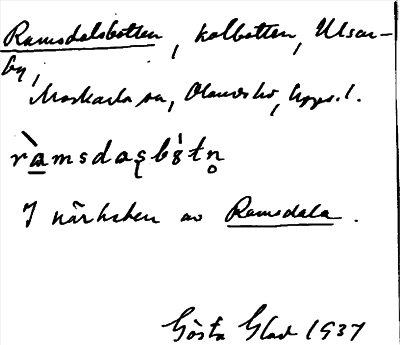 Ramsdalsbotten, kolbotten, Ulsar-
by,
Moskarla sn, Olands hd, Upps. l.
ràmsdasbòtn
I närheten av Ramsdala.
Gösta Glad 1937